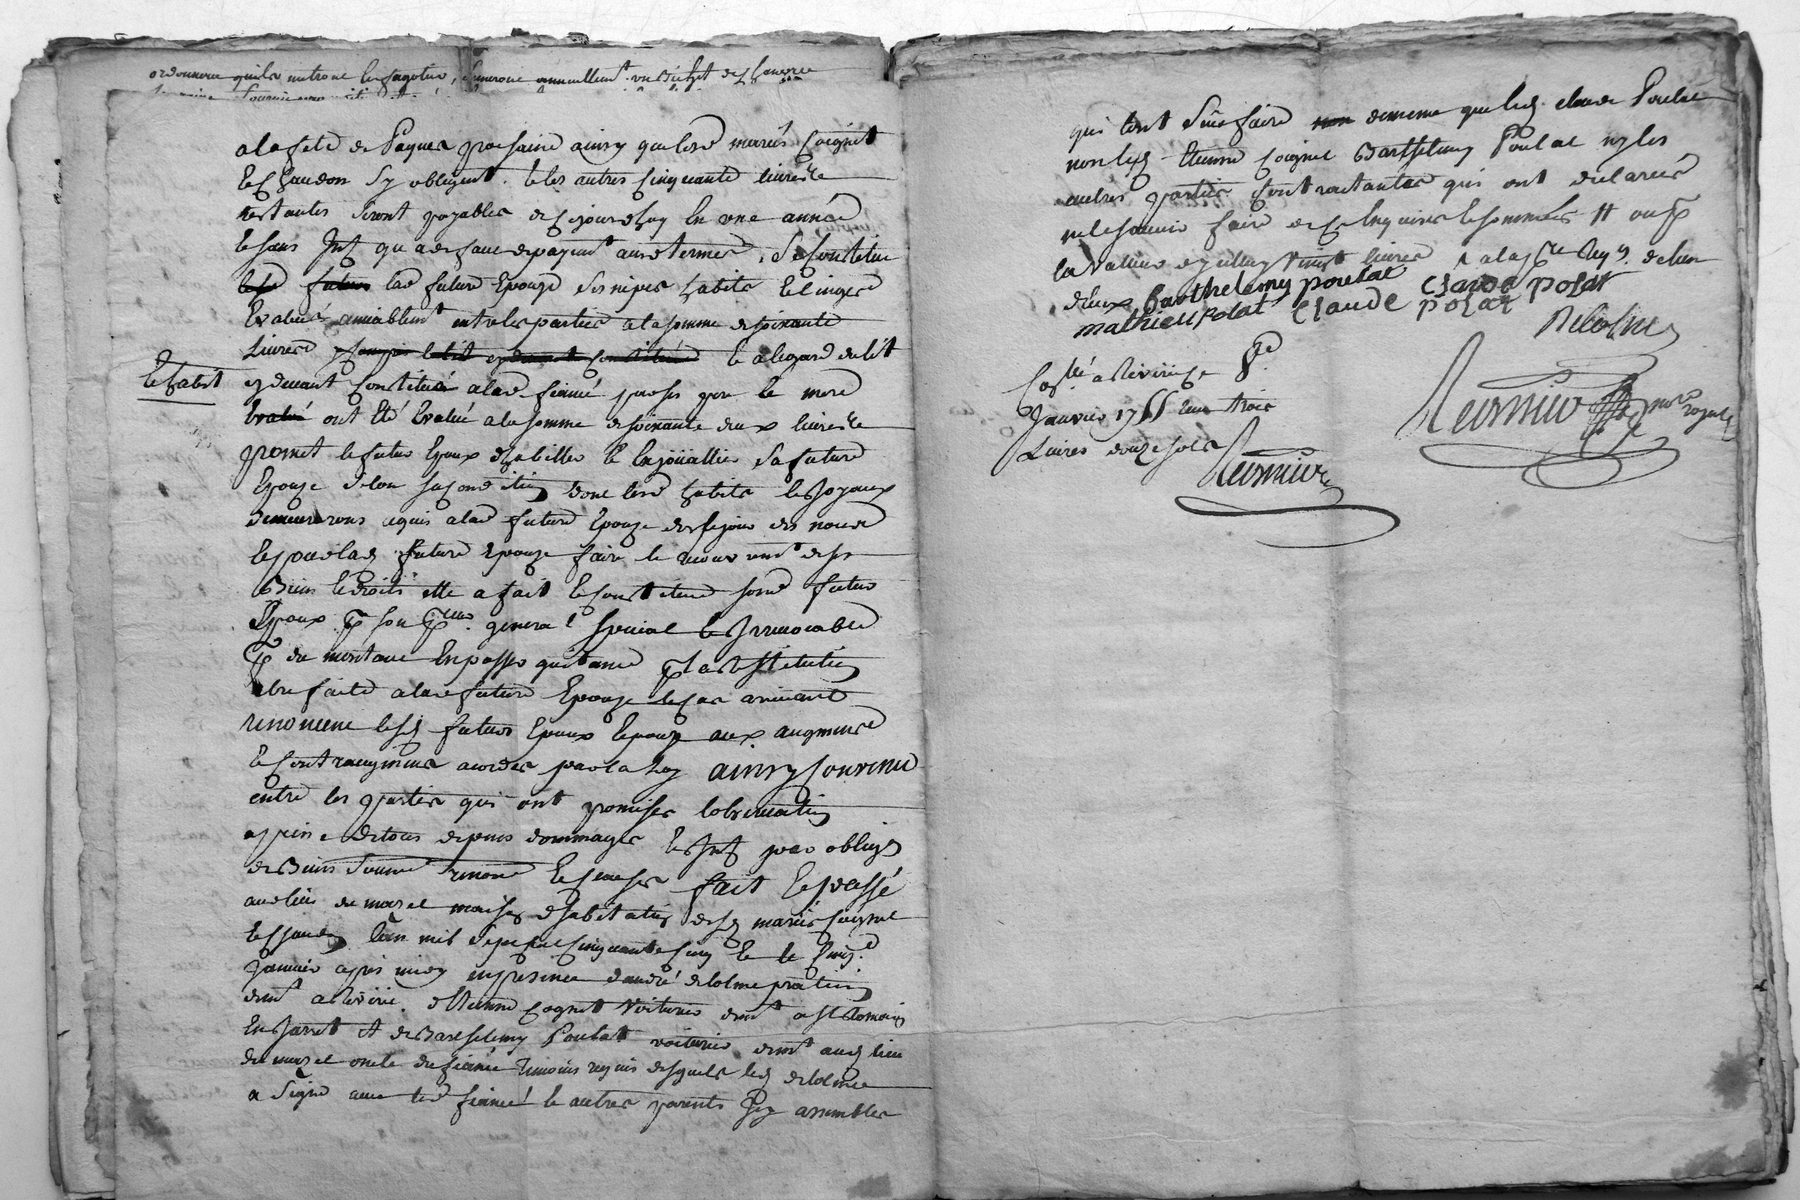 ordonnera quils metront les fagotier, annuellemt un Bichet de
a la fete de Paques prochaine ainsy que lesd mariés Coignet
et Chaudon Sy obligent. et les autres Cinquante livres
restantes Seront payables de Ce jourdhuy En une année
et sans Int qu a deffaut de payemt aud termes, Se Constitue
lad future Epouze Ses nipes habits et linges
Evalués amiablemt entre les parties a la somme de soixante
Livres et a legard du lit
et habit
cy devant Constitué a lad fiancé par sa mere
ont Eté Evalué a la somme de soixante deux livres
promet le futur Epoux dhabiller et Enjoüallier Sa future
Epouze Selon Sa Condition dont lesd habits et Joyaux
demeureront aquis a lad future Epouze des le jour des noces
et pour lad future Epouze faire le recouvremt de ses
Biens et droits elle a fait et Constitué sond futur
Epoux pr son general Special et Irrevocable
pr du montant En passer quitance pr la restitution
etre faite a lad future Epouze le cas arrivant
renoncent lesd futurs Epoux Epouze aux augment
et Contraugment acordés par la Loy ainsy Convenu
entre les parties qui ont promises lobservation
a peine de tous depens dommages et Int par obligon
de Biens Soumon renonon et Clauses fait et passé
aud lieu du mazel maison dhabitation desd mariés Coignet
et Chaudon Lan mil Sept Cent Cinquante Cinq et le
Janvier apres midy en presence dandré delolme praticien
demt a Riverie, dEtienne Cognet Voiturier demt a St Romain
En Jarret et de Barthelemy Poulat voiturier demt aud lieu
du mazel oncle du fiancé temoins requis desquels led delolme
a Signé avec led fiancé et autres parents Icy assemblés
qui lont Sceu faire de meme que led Claude Poulat
non led Etienne Coignet Barthelemy Poulat ny les
autres parties Contractantes qui ont declarés
ne le scavoir faire de Ce Enquises et sommées
la valleur livres a la delun
deux barthelemy poulat claude polat
mathieu polat claude polat
Delolme
Collé a Riverie Ce
Janvier 1755 reçu trois
Livres douze sols